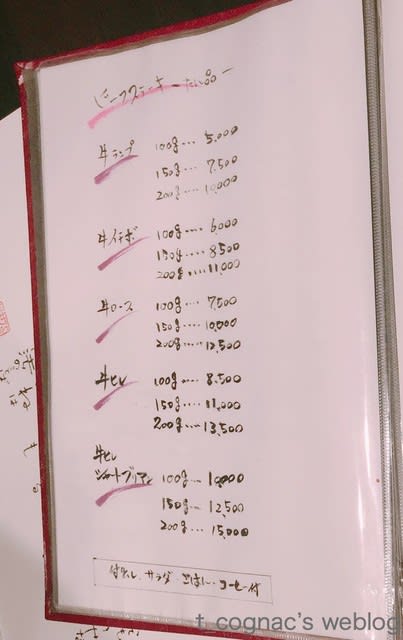 ビーフステーキ
牛ランプ 100g.... 5,000
150g.... 7,500
200g.... 10,000
牛イチボ 100g.... 6000
150g.... 8500
200g.... 11,000
牛ロース 100g.... 7500
150g.... 10,000
200g.... 12,500
牛ヒレ 100g.... 8,500
150g.... 11,000
200g.... 13,500
牛ヒレ
シャートブリアン 100g... 10,000
150g... 12,500
200g... 15,000
付出し、サラダ・ごはん・コーヒー付
t_cognac's weblog